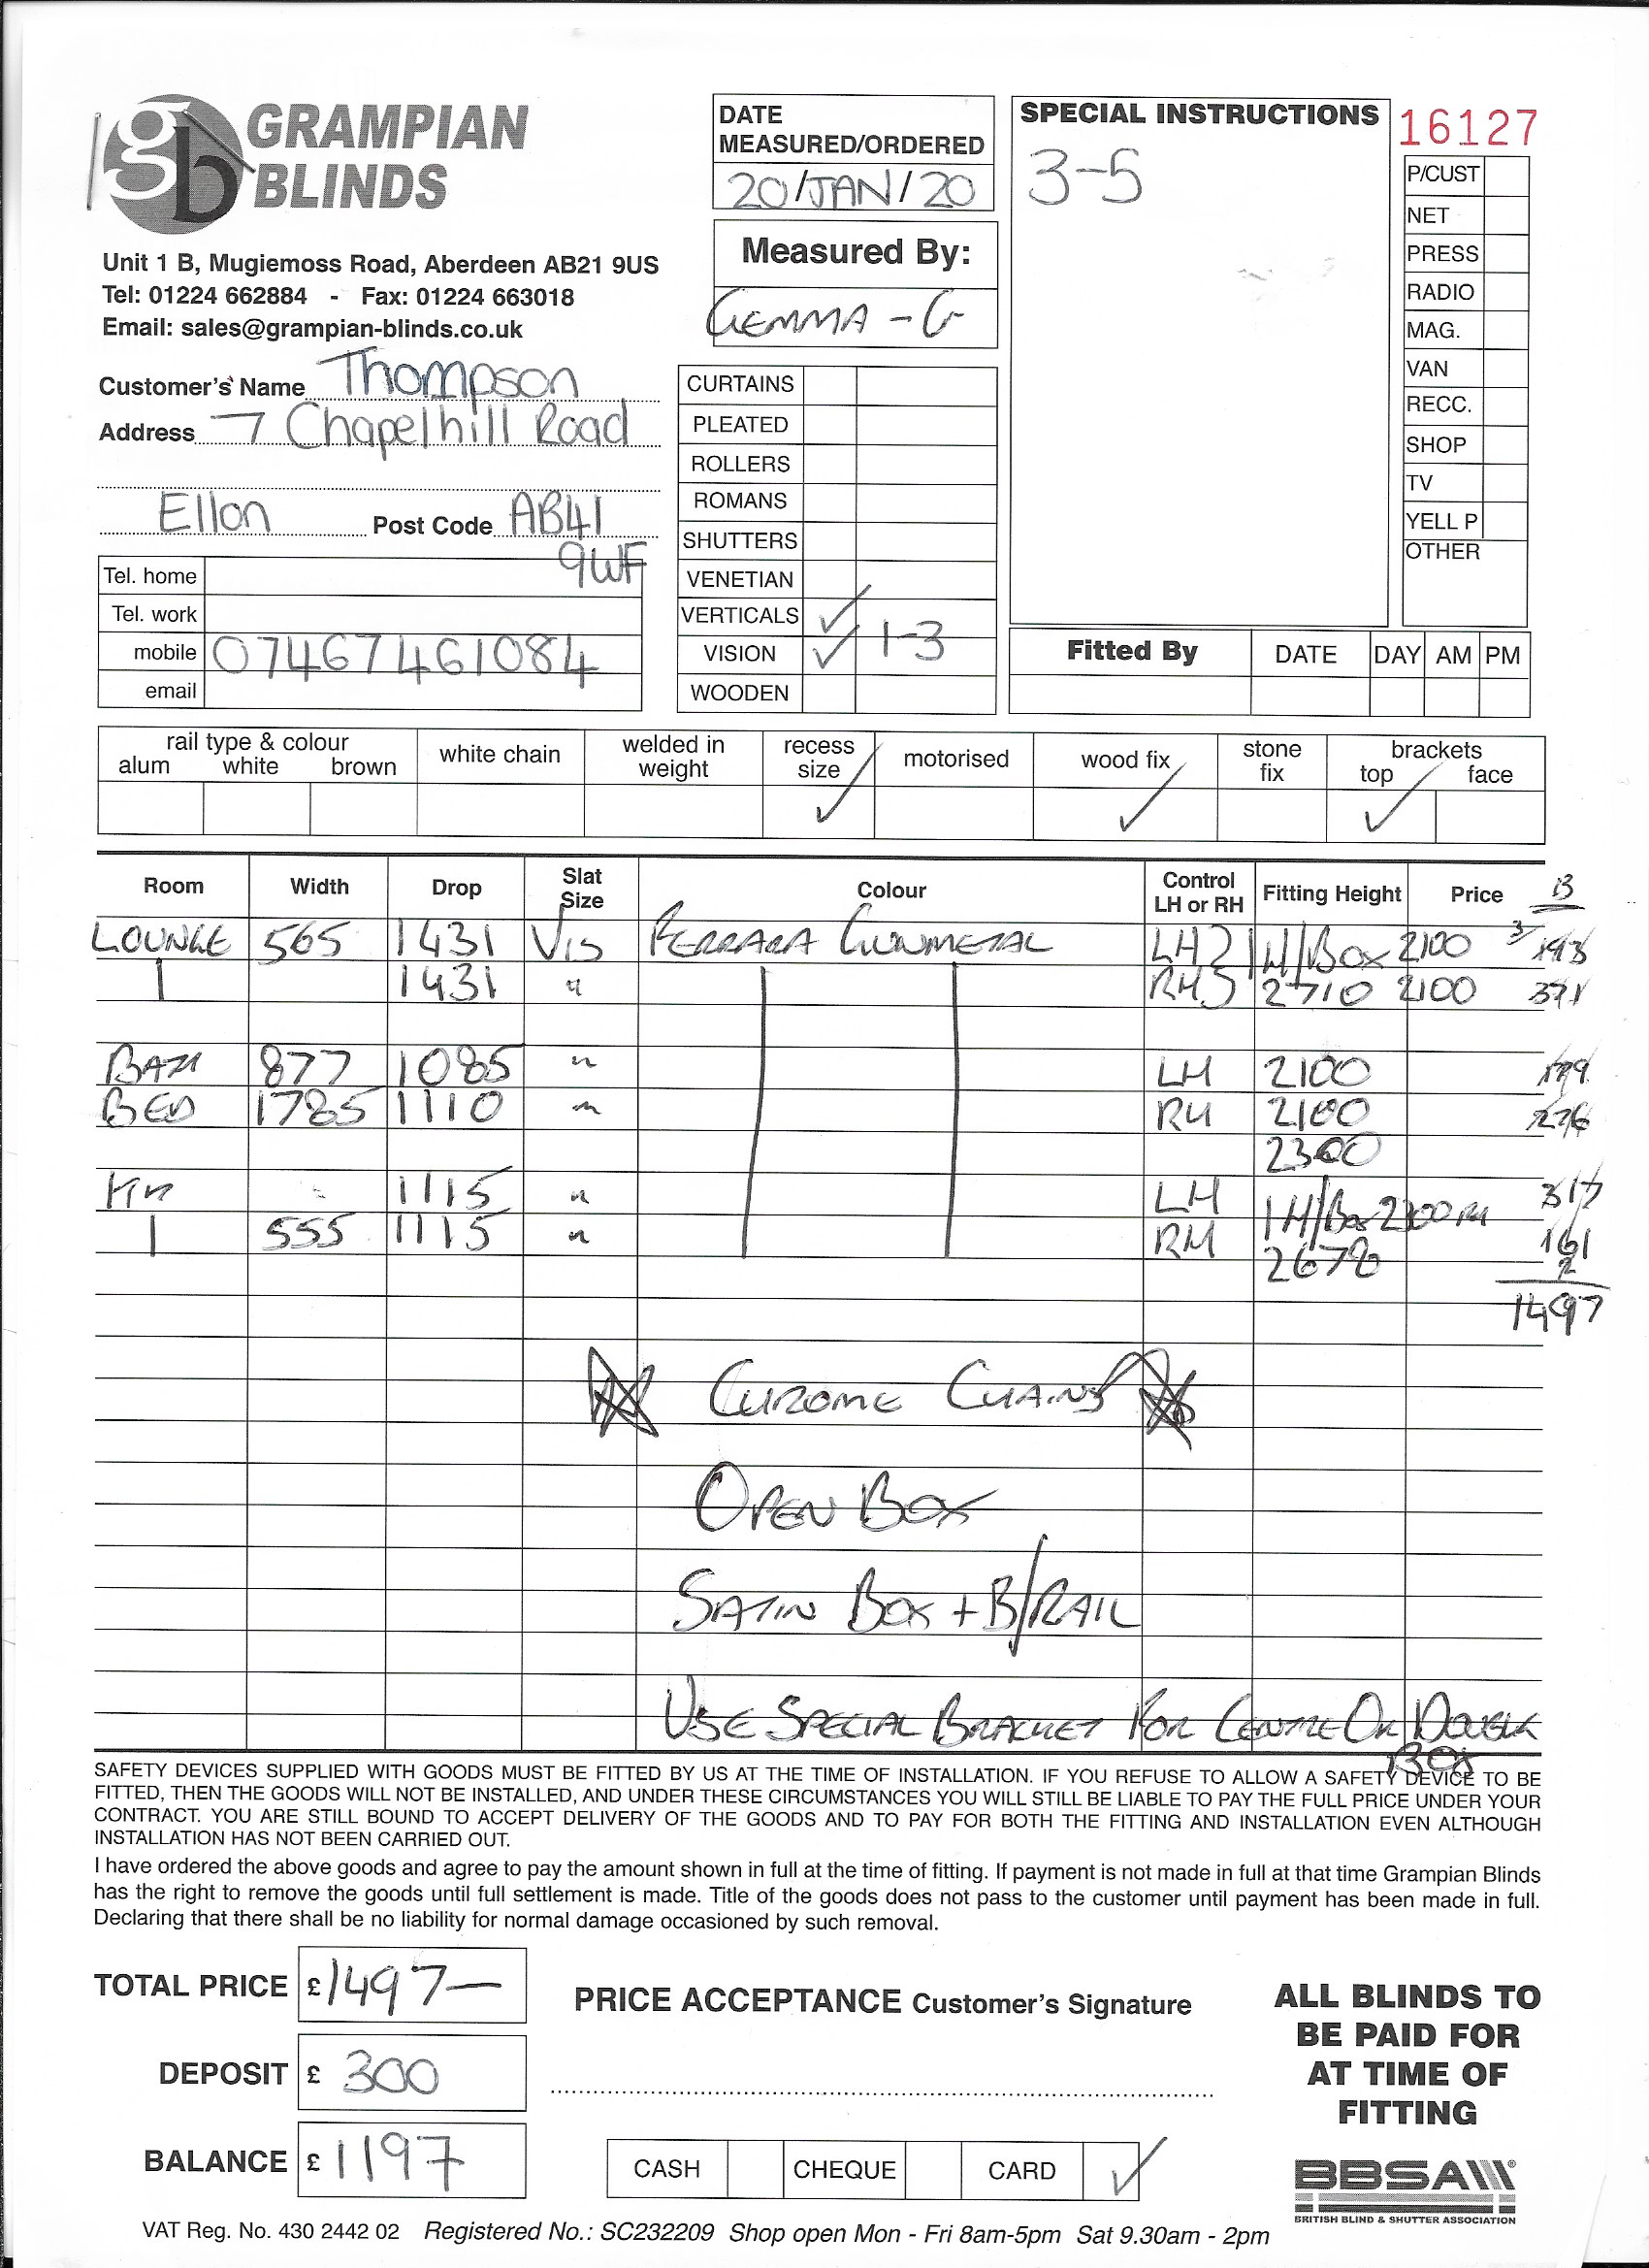 gb GRAMPIAN
BLINDS
Unit 1 B, Mugiemoss Road, Aberdeen AB21 9US
Tel: 01224 662884 - Fax: 01224 663018
Email: sales@grampian-blinds.co.uk
Customer's Name Thompson
Address 7 Chapelhill Road
Ellon Post Code AB41
9WF
Tel. home
Tel. work
mobile 07467461084
email
DATE
MEASURED/ORDERED
20/JAN/20
Measured By:
GEMMA - G
CURTAINS
PLEATED
ROLLERS
ROMANS
SHUTTERS
VENETIAN
VERTICALS ✓
VISION ✓ 1-3
WOODEN
SPECIAL INSTRUCTIONS
3-5
16127
P/CUST
NET
PRESS
RADIO
MAG.
VAN
RECC.
SHOP
TV
YELL P
OTHER
Fitted By DATE DAY AM PM
rail type & colour
alum white brown
white chain
welded in
weight
recess
size ✓
motorised
wood fix ✓
stone
fix
brackets
top ✓ face
Room Width Drop Slat Size Colour Control LH or RH Fitting Height Price B
LOUNGE 565 1431 VIS FERRARA GUNMETAL LH 1H/BOX 2100 3/ 193
1431 " RH 2710 2100 371
BATH 877 1085 " LH 2100 179
BED 1785 1110 " RH 2100 276
2300
KIT 1115 " LH 1H/BOX 2300 317
555 1115 " RH 2678 161
2
1497
CHROME CHAINS
OPEN BOX
SATIN BOX + B/RAIL
USE SPECIAL BRACKET FOR CENTRE OR DOUBLE
BOX
SAFETY DEVICES SUPPLIED WITH GOODS MUST BE FITTED BY US AT THE TIME OF INSTALLATION. IF YOU REFUSE TO ALLOW A SAFETY DEVICE TO BE
FITTED, THEN THE GOODS WILL NOT BE INSTALLED, AND UNDER THESE CIRCUMSTANCES YOU WILL STILL BE LIABLE TO PAY THE FULL PRICE UNDER YOUR
CONTRACT. YOU ARE STILL BOUND TO ACCEPT DELIVERY OF THE GOODS AND TO PAY FOR BOTH THE FITTING AND INSTALLATION EVEN ALTHOUGH
INSTALLATION HAS NOT BEEN CARRIED OUT.
I have ordered the above goods and agree to pay the amount shown in full at the time of fitting. If payment is not made in full at that time Grampian Blinds
has the right to remove the goods until full settlement is made. Title of the goods does not pass to the customer until payment has been made in full.
Declaring that there shall be no liability for normal damage occasioned by such removal.
TOTAL PRICE £1497—
DEPOSIT £ 300
BALANCE £ 1197
PRICE ACCEPTANCE Customer's Signature
CASH CHEQUE CARD ✓
ALL BLINDS TO
BE PAID FOR
AT TIME OF
FITTING
BBSA
BRITISH BLIND & SHUTTER ASSOCIATION
VAT Reg. No. 430 2442 02 Registered No.: SC232209 Shop open Mon - Fri 8am-5pm Sat 9.30am - 2pm